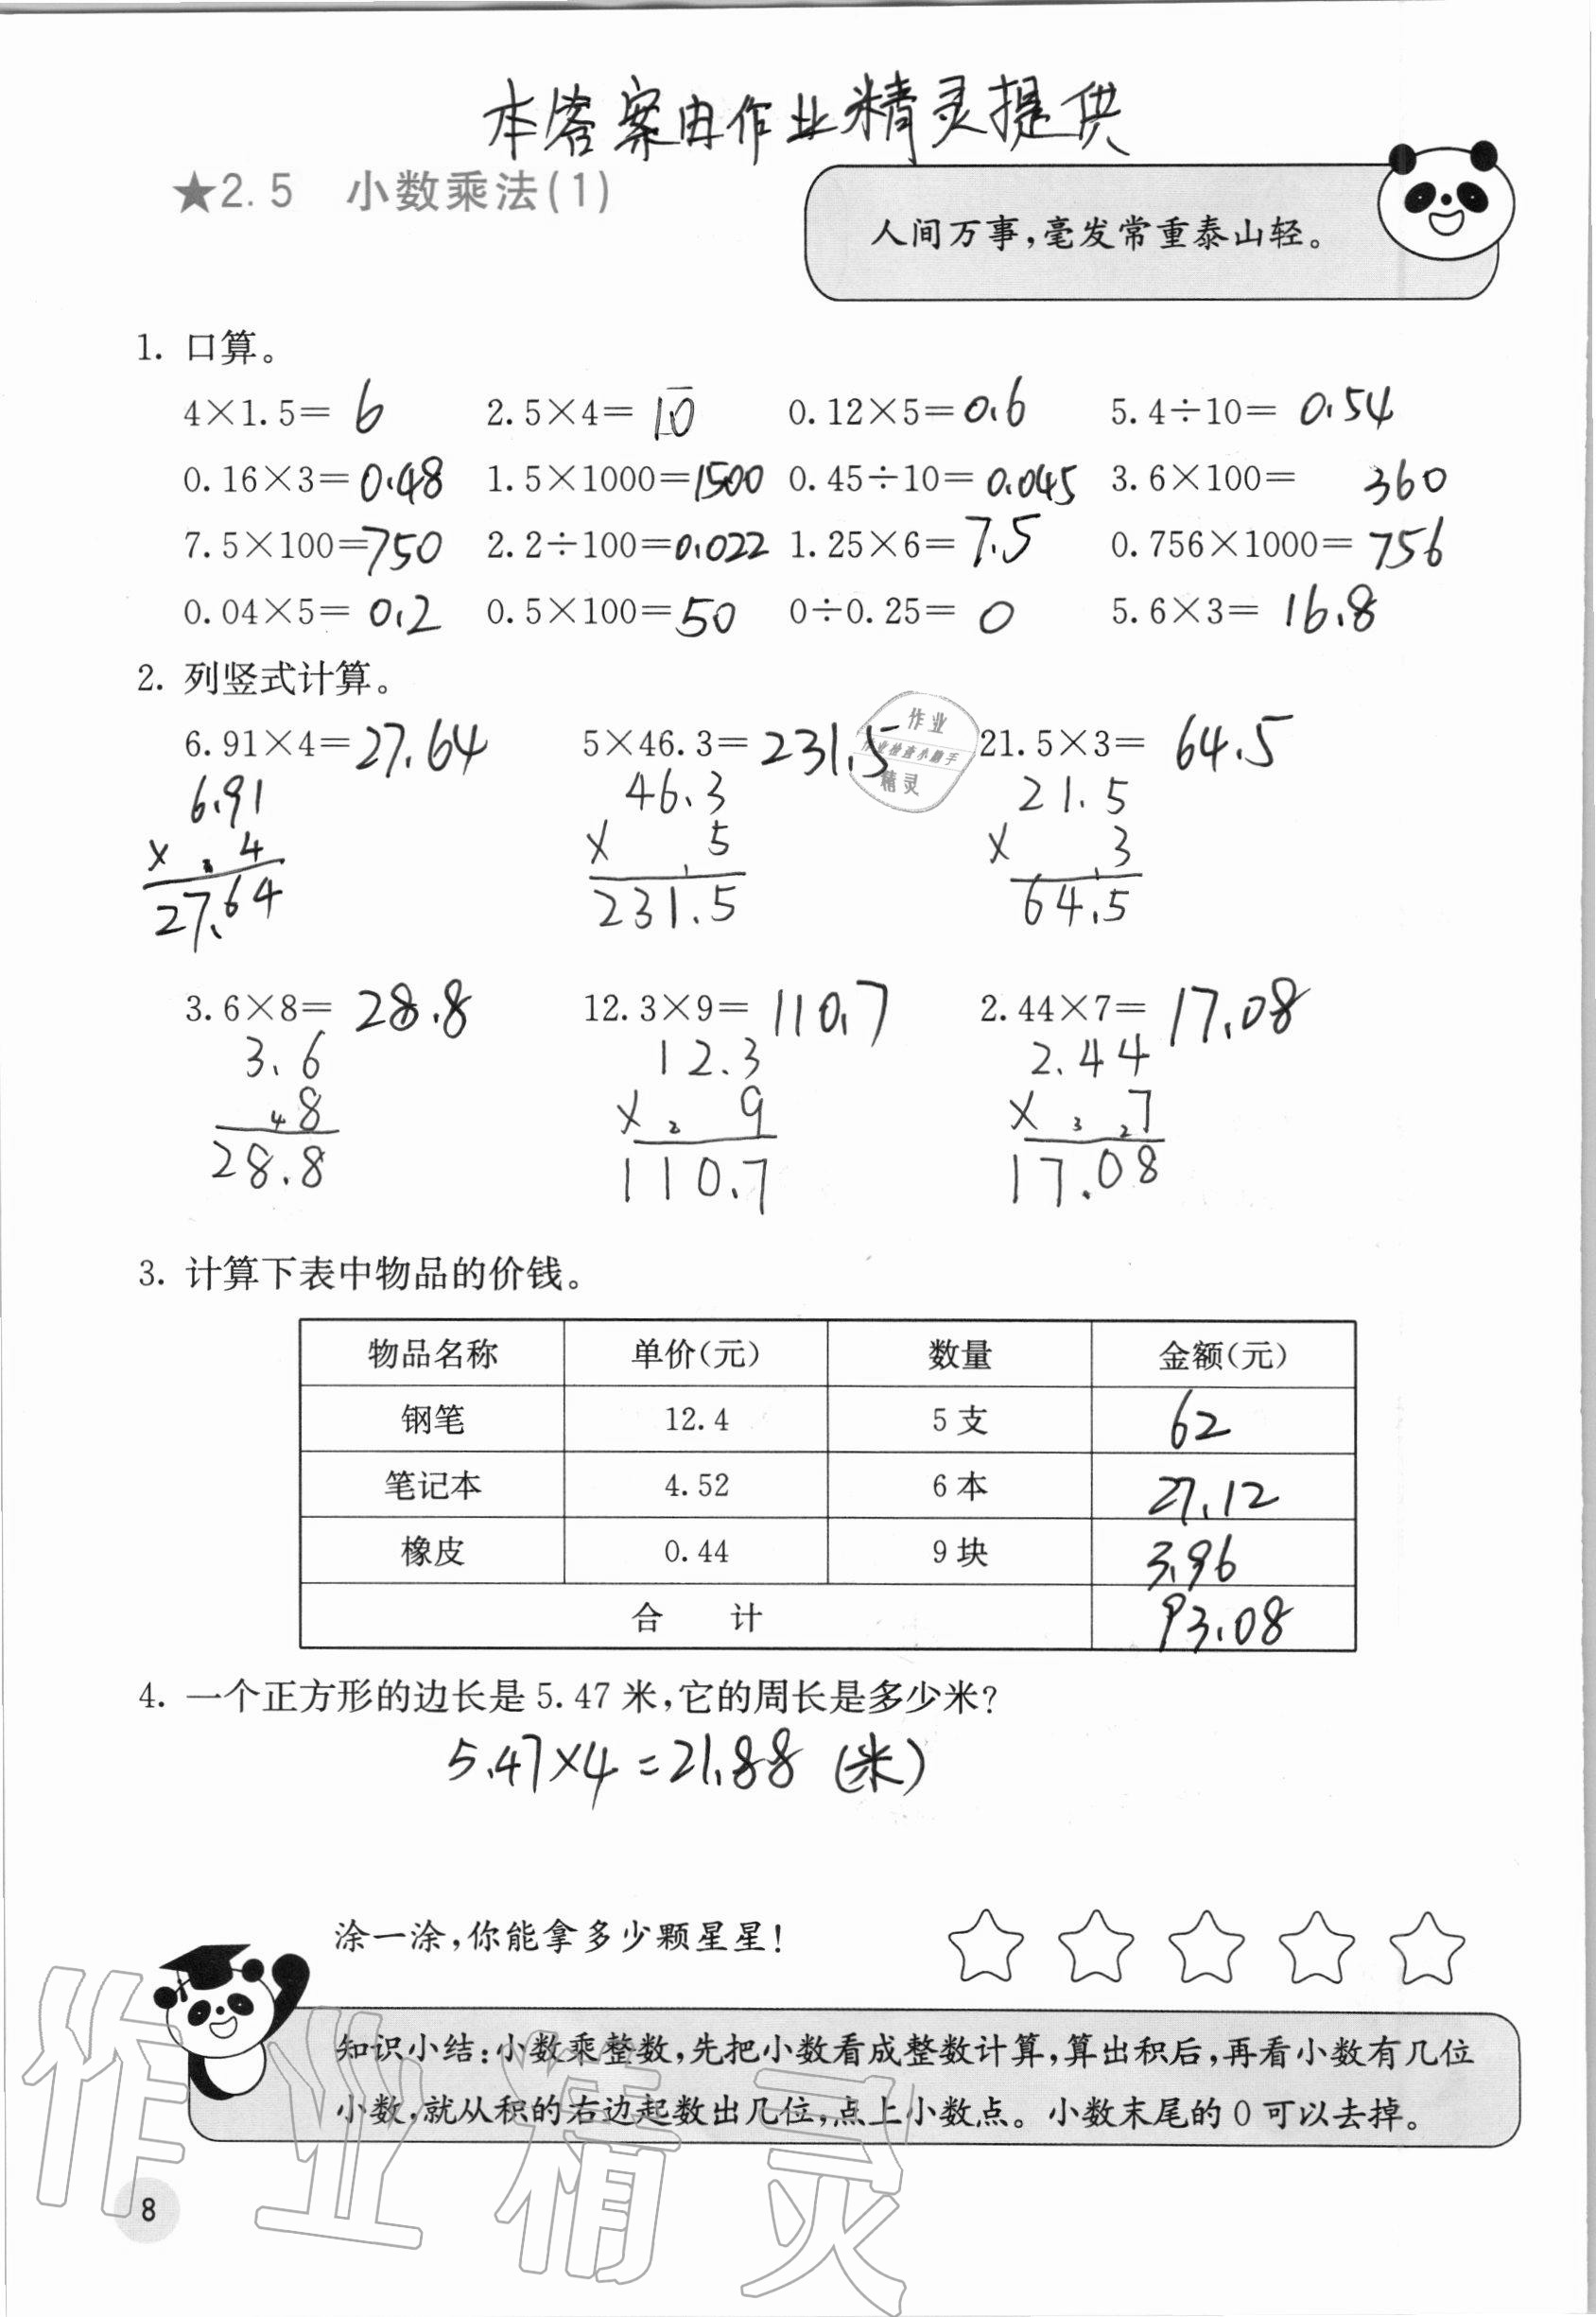 本答案由作业精灵提供
★2.5 小数乘法(1)
人间万事,毫发常重泰山轻。
1. 口算。
4×1.5= 6 2.5×4= 10 0.12×5=0.6 5.4÷10= 0.54
0.16×3=0.48 1.5×1000=1500 0.45÷10=0.045 3.6×100= 360
7.5×100=750 2.2÷100=0.022 1.25×6=7.5 0.756×1000=756
0.04×5=0.2 0.5×100=50 0÷0.25= 0 5.6×3= 16.8
2. 列竖式计算。
6.91×4=27.64 5×46.3=231.5 21.5×3= 64.5
6.91 46.3 21.5
× 4 × 5 × 3
27.64 231.5 64.5
作业
作业检查小助手
精灵
3.6×8= 28.8 12.3×9= 110.7 2.44×7=17.08
3.6 12.3 2.44
4 8 × 2 9 × 3 2 7
28.8 110.7 17.08
3. 计算下表中物品的价钱。
物品名称 单价(元) 数量 金额(元)
钢笔 12.4 5支 62
笔记本 4.52 6本 27.12
橡皮 0.44 9块 3.96
合 计 93.08
4. 一个正方形的边长是5.47米,它的周长是多少米?
5.47×4=21.88 (米)
涂一涂,你能拿多少颗星星!
知识小结:小数乘整数,先把小数看成整数计算,算出积后,再看小数有几位
小数,就从积的右边起数出几位,点上小数点。小数末尾的0可以去掉。
作业精灵
8